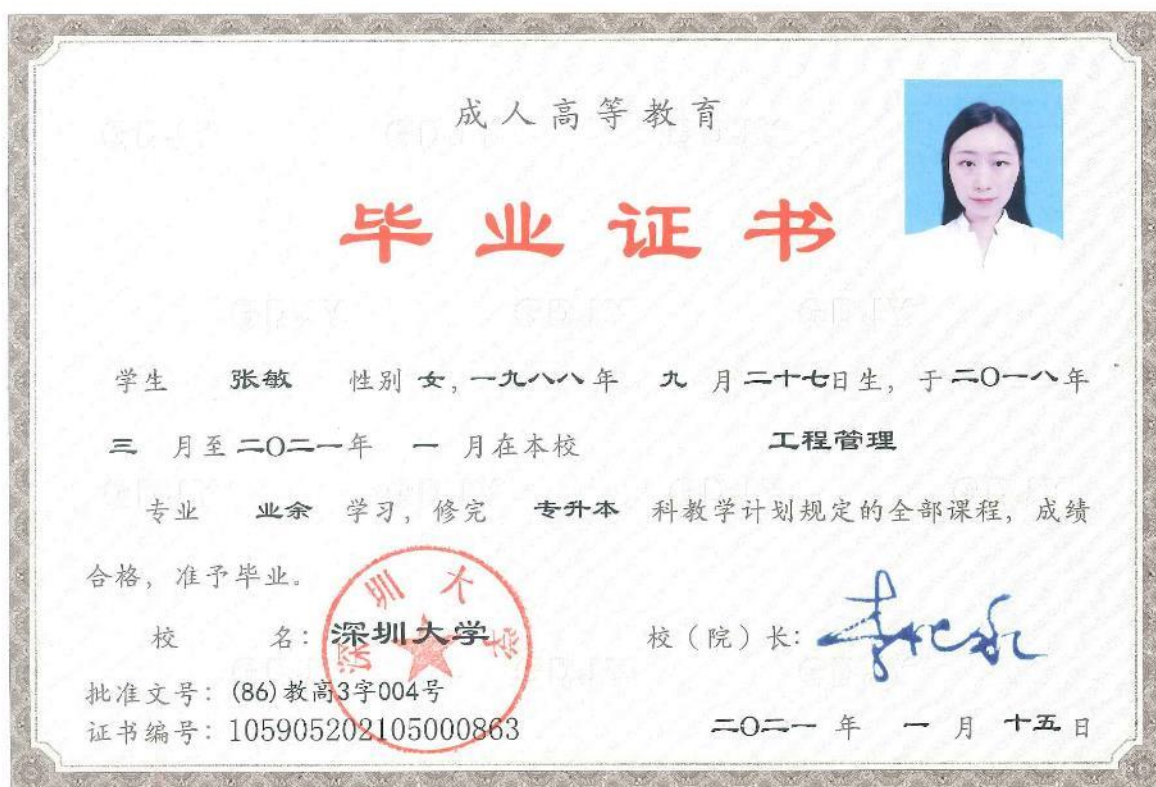 成人高等教育
毕业证书
学生 张敏 性别 女，一九八八年 九 月二十七日生，于二〇一八年
三 月至二〇二一年 一 月在本校 工程管理
专业 业余 学习，修完 专升本 科教学计划规定的全部课程，成绩
合格，准予毕业。
深圳大学
校 名：深圳大学 校（院）长：
批准文号：(86)教高3字004号
证书编号：105905202105000863 二〇二一 年 一 月 十五 日